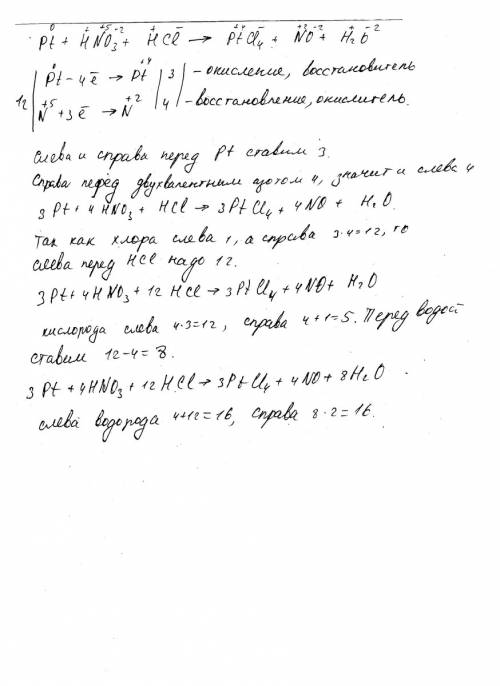 0 + +5 -2 + - +4 - +2 -2 + -2
Pt + HNO₃ + HCl → PtCl₄ + NO + H₂O
12 | Pt⁰ - 4ē → Pt⁺⁴ | 3 | - окисление, восстановитель
N⁺⁵ + 3ē → N⁺² | 4 | - восстановление, окислитель.
слева и справа перед Pt ставим 3.
Справа перед двухвалентным азотом 4, значит и слева 4
3Pt + 4HNO₃ + HCl → 3PtCl₄ + 4NO + H₂O.
так как хлора слева 1, а справа 3·4=12, то
слева перед HCl надо 12.
3Pt + 4HNO₃ + 12HCl → 3PtCl₄ + 4NO + H₂O
кислорода слева 4·3=12, справа 4+1=5. Перед водой
ставим 12-4=8.
3Pt + 4HNO₃ + 12HCl → 3PtCl₄ + 4NO + 8H₂O
слева водорода 4+12=16, справа 8·2=16.